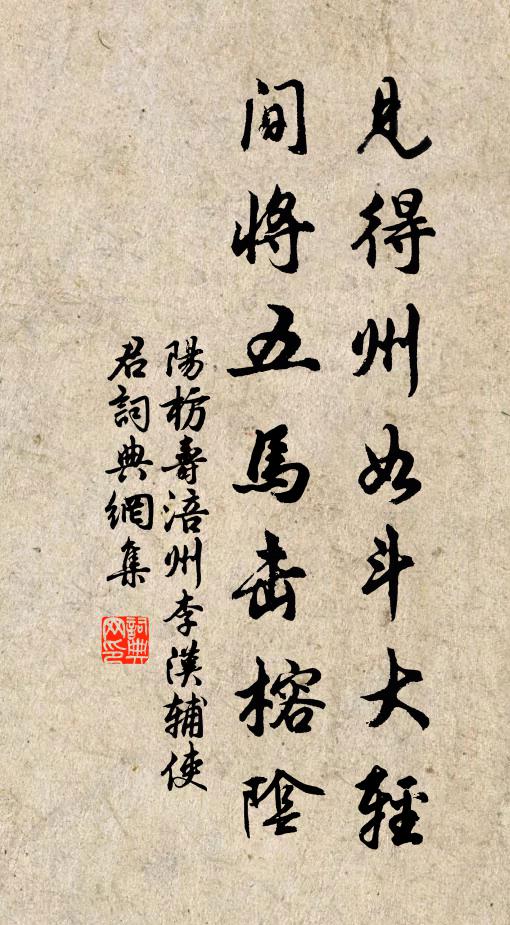 見得州如斗大輕
間將五馬击榕陰
陽枋壽涪州李漢輔使
君詞典網集
詞典网印